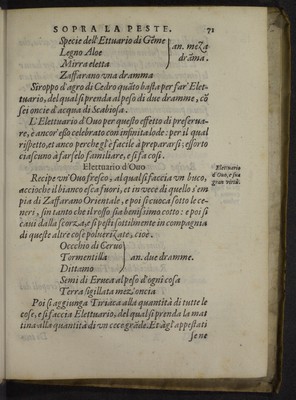 SOPRA LA PESTE. 71
Specie dell'Ettuario di Gẽme
Legno Aloe
Mirra eletta
an. meza
drãma.
Zaffarano vna dramma
Siroppo d'agro di Cedro quãto basta per far' Elet-
tuario, del qual si prenda al peso di due dramme, cõ
sei oncie d'acqua di Scabiosa.
L'Elettuario d'Ouo per questo effetto di preserua-
re, è ancor' esso celebrato con infinita lode: per il qual
rispetto, et anco perche gl'è facile à prepararsi; essorto
ciascuno à farselo familiare, e si fa così.
Elettuario d'Ouo
Elettuario
d'Ouo, e sua
gran virtù.
Recipe vn'Ouo fresco, al qual si faccia vn buco,
accioche il bianco esca fuori, et in vece di quello s'em
pia di Zaffarano Orientale, e poi si cuoca sotto le ce-
neri, sin tanto che il rosso sia benissimo cotto: e poi si
caui dalla scorza, e si pesti sottilmente in compagnia
di queste altre cose poluerizate, cioè.
Occchio di Ceruo
Tormentilla
Dittamo
an. due dramme.
Semi di Eruca al peso d'ogni cosa
Terra sigillata mez'oncia
Poi si aggiunga Tiriaca alla quantità di tutte le
cose, e si faccia Elettuario, del qual si prenda la mat
tina alla quantità di vn cece grãde. Et à gl'appestati
se ne